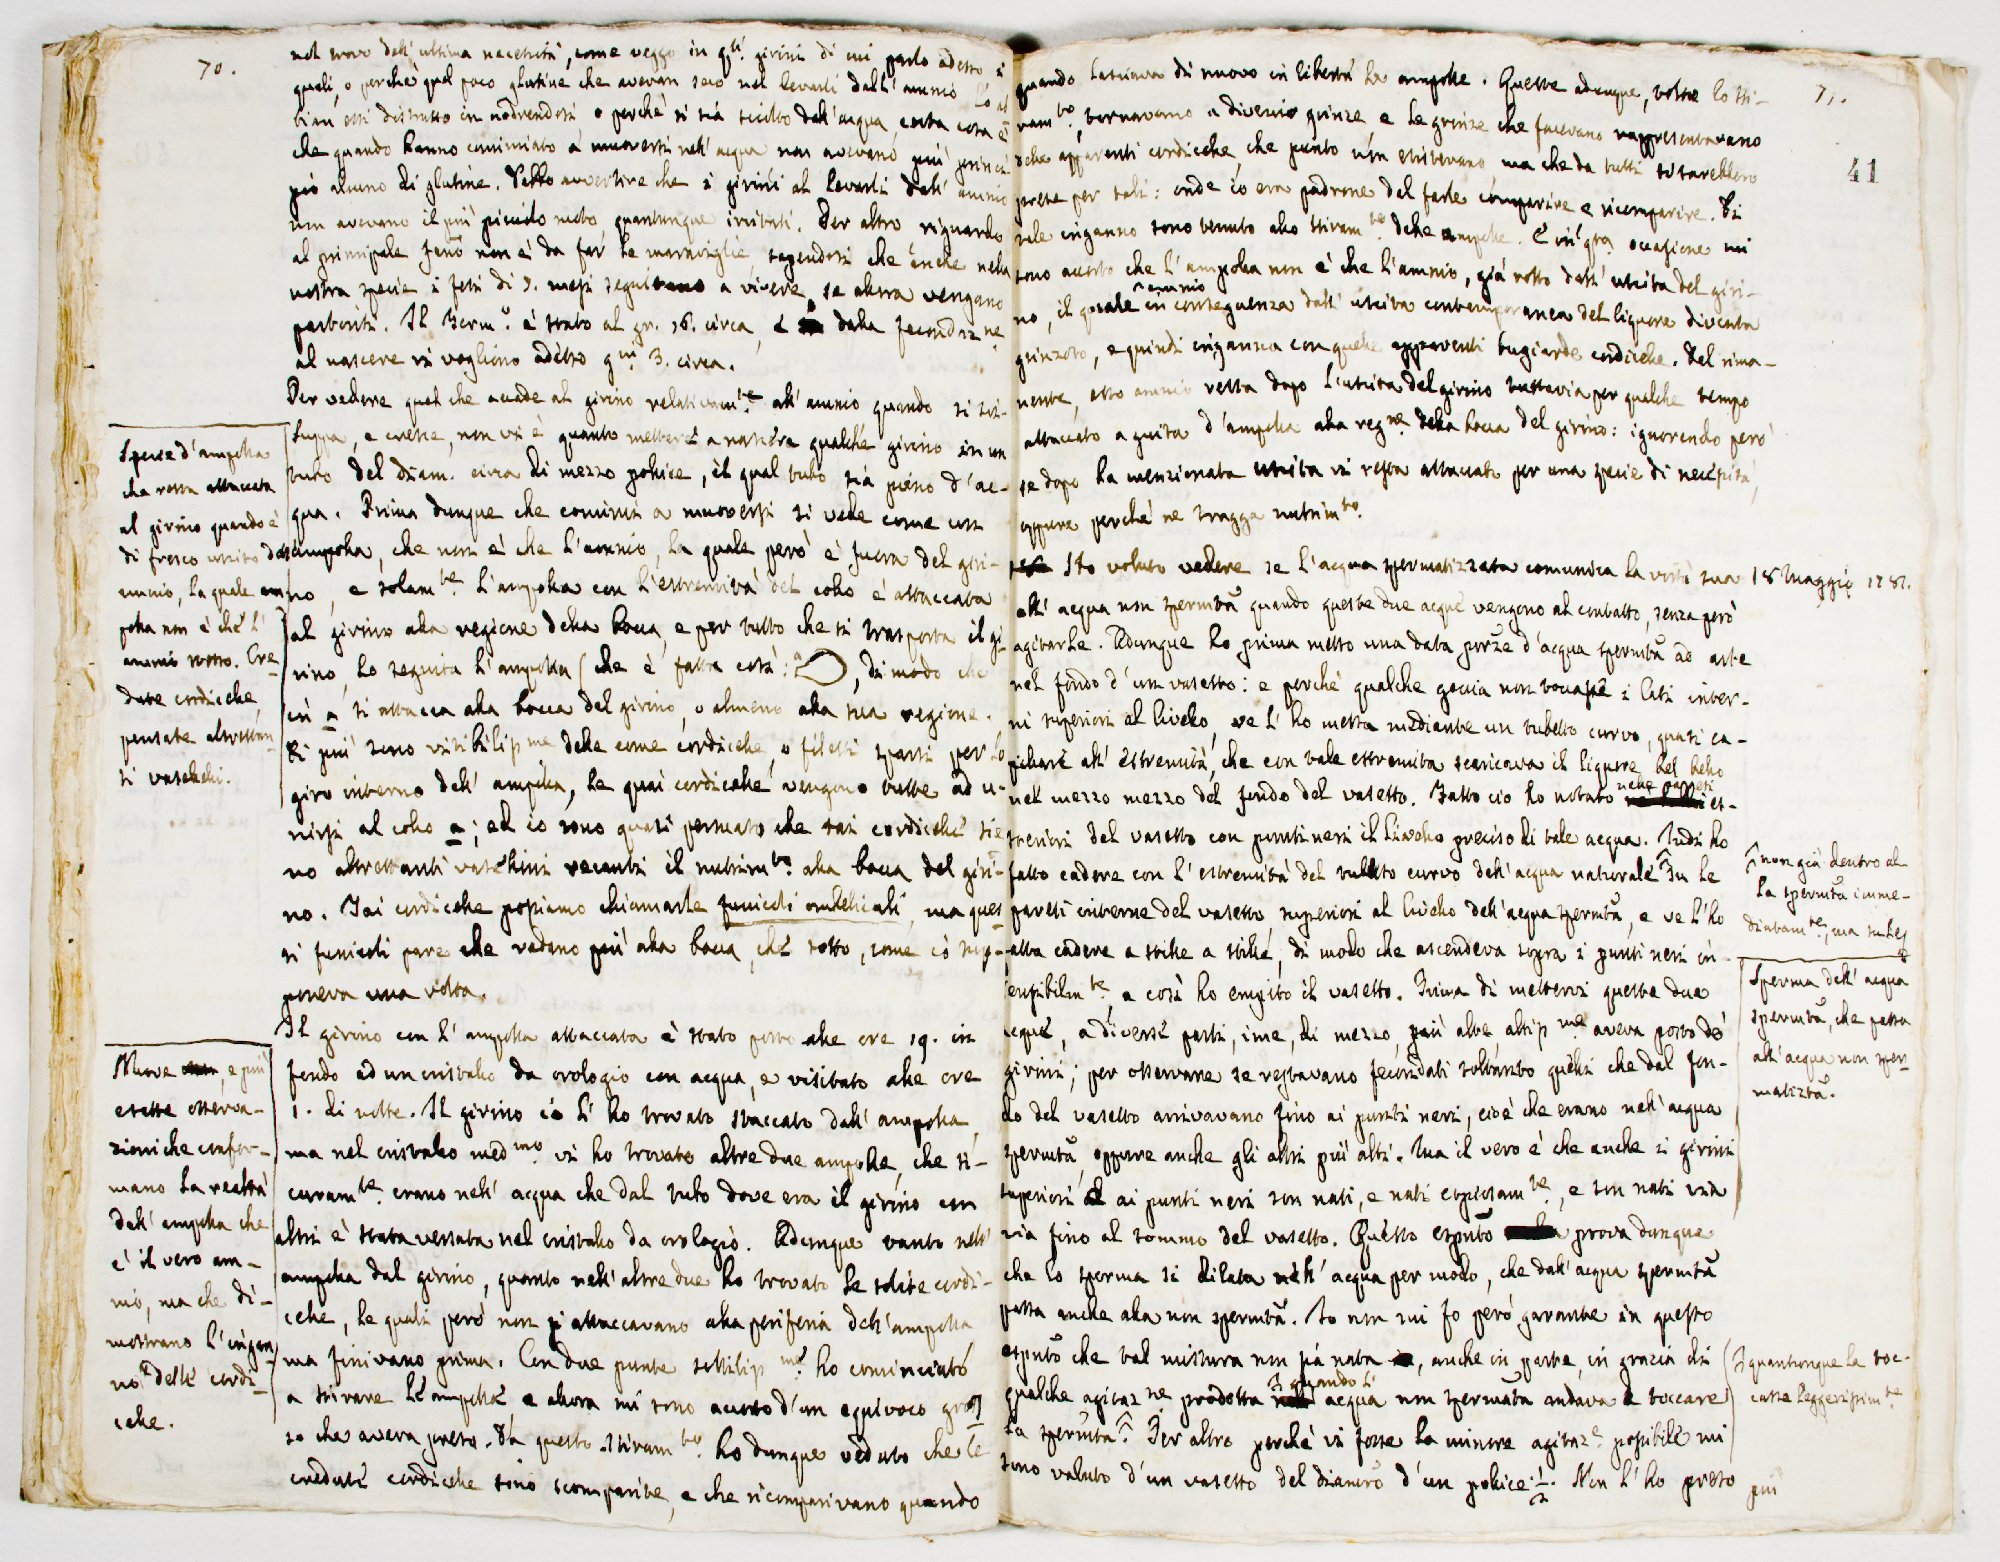 70.
nel travo dell'ultima necessità, come veggo in q.ti girini di cui parlo adesso i
quali, o perchè quel poco glutine che avevan seco nel levarli dall'amnio lo ab
bian essi distrutto in nodrendosi o perchè si sia sciolto dall'acqua, certa cosa è
che quando hanno cominciato a muoversi nell'acqua non avevano più princi-
pio alcuno di glutine. Debbo avvertire che i girini al levarli dall'amnio
non avevano il più piccolo moto, quantunque irritati. Per altro riguardo
al principale fenõ non è da far le maraviglie, sapendosi che anche nella
nostra specie i feti di 7. mesi seguitano a vivere, se allora vengano
partoriti. Il Term.o è stato al gr. 16. circa, e dalla fecondaz.ne
al nascere vi vogliono adesso g.ni 3. circa.
Per vedere quel che accade al girino relativam.te all'amnio quando si svi-
luppa, e cresce, non vi è quanto mettere a nascere qualche girino in un
tubo del diam. circa di mezzo pollice, il qual tubo sia pieno d'ac-
qua. Prima dunque che cominci a muoversi si vede come un
ampolla, che non è che l'amnio, la quale però è fuora del giri-
no, e solam.te l'ampolla con l'estremità del collo è attaccata
al girino alla regione della bocca, e per tutto che si trasporta il gi-
rino, lo seguita l'ampolla (che è fatta così: a , di modo che
in a si attacca alla bocca del girino, o almeno alla sua regione.
Di più sono visibiliss.me delle come cordicelle, o filetti sparsi per lo
giro interno dell'ampolla, le quai cordicelle vengono tutte ad u-
nirsi al collo a; ed io sono quasi persuaso che tai cordicelle sie
no altrettanti vasellini recanti il nutrim.to alla bocca del giri-
no. Tai cordicelle possiamo chiamarle funicoli umbellicali, ma ques
ti funicoli pare che vadano più alla bocca, che sotto, come io sup-
poneva una volta.
Il girino con l'ampolla attaccata è stato posto alle ore 19. in
fondo ad un cristallo da orologio con acqua, e visitato alle ore
1. di notte. Il girino io l'ho trovato staccato dall'ampolla,
ma nel cristallo med.mo vi ho trovato altre due ampolle, che si-
curam.te erano nell'acqua che dal tubo dove era il girino con
altri è stata versata nel cristallo da orologio. Adunque tanto nell'
ampolla dal girino, quanto nell'altre due ho trovato le solite cordi-
celle, le quali però non s'attaccavano alla periferia dell'ampolla
ma finivano prima. Con due punte sottiliss.me ho cominciato
a stirare le ampolle e allora mi sono accorto d'un equivoco gros
so che aveva preso. Da questo stiram.to ho dunque veduto che le
credute cordicelle sono scomparite, e che ricomparivano quando
Specie d'ampolla
che resta attaccata
al girino quando è
di fresco uscito dall'
amnio, la quale am
polla non è che l'
amnio rotto. Cre
dute cordicelle,
pensate altrettan
ti vaselli.
Nuove , e più
esatte osserva-
zioni che confer-
mano la realtà
dell'ampolla che
è il vero am-
nio, ma che di-
mostrano l'ingan
no delle cordi-
celle.
71.
41
quando lasciava di nuovo in libertà le ampolle. Queste adunque, tolto lo sti-
ram.to, tornavano a divenir grinze, e le grinze che facevano rappresentavano
delle apparenti cordicelle, che punto non esistevano, ma che da tutti si sarebbero
prese per tali: onde io era padrone del farle comparire e ricomparire. Di
tale inganno sono tenuto allo stiram.to delle ampolle. E in q.ta occasione mi
sono accorto che l'ampolla non è che l'amnio, già rotto dall'uscita del giri-
no, il quale amnio in conseguenza dall'uscita contemporanea del liquore diventa
grinzoso, e quindi inganna con quelle apparenti bugiarde cordicelle. Del rima-
nente, esso amnio resta dopo l'uscita del girino tuttavia per qualche tempo
attaccato a guisa d'ampolla alla reg.ne della bocca del girino: ignorando però
se dopo la menzionata uscita vi resta attaccato per una specie di necessità,
oppure perchè ne tragga nutrim.to.
Ho voluto vedere se l'acqua spermatizzata comunica la virtù sua
18 Maggio 1781.
all'acqua non spermtã quando queste due acque vengono al contatto, senza però
agitarle. Adunque ho prima messo una data porz.e d'acqua spermtã ad arte
nel fondo d'un vasetto: e perchè qualche goccia non toccasse i lati inter-
ni superiori al livello, ve l'ho messa mediante un tubetto curvo, quasi ca-
pillare all'estremità, che con tale estremità scaricava il liquore bel bello
nel mezzo mezzo del fondo del vasetto. Fatto ciò ho notato nelle pareti es-
teriori del vasetto con punti neri il livello preciso di tale acqua. Indi ho
fatto cadere con l'estremità del tubetto curvo dell'acqua naturale su le
pareti interne del vasetto, superiori al livello dell'acqua spermtã, e ve l'ho
fatta cadere a stille a stille, di modo che ascendeva sopra i punti neri in-
sensibilm.te e così ho empito il vasetto. Prima di mettervi queste due
acque, a diverse parti, ime, di mezzo, più alte altiss.me aveva posto de'
girini; per osservare se restavano fecondati soltanto quelli che dal fon-
do del vasetto arrivavano fino ai punti neri, cioè che erano nell'acqua
spermtã, oppure anche gli altri più alti. Ma il vero è che anche i girini
superiori ai punti neri son nati, e nati copiosam.te, e son nati via
via fino al sommo del vasetto. Questo esprito prova dunque
che lo sperma si dilata nell'acqua per modo, che dall'acqua spermtã
passa anche alla non spermtã. Io non mi fo però garante in questo
esprito che tal mistura non sia nata , anche in parte, in grazia di
qualche agitaz.ne prodotta quando l'acqua non spermata andava a toccare
la spermtã. Per altro perchè vi fosse la minore agitaz.e possibile mi
sono valuto d'un vasetto del diamtrõ d'un pollice 1/2. Non l'ho preso
più
non già dentro al
la spermtã imme-
diatam.te, ma sul
Sperma dell'acqua
spermtã, che passa
all'acqua non sper
matiztã.
quantunque la toc-
casse leggerissim.te